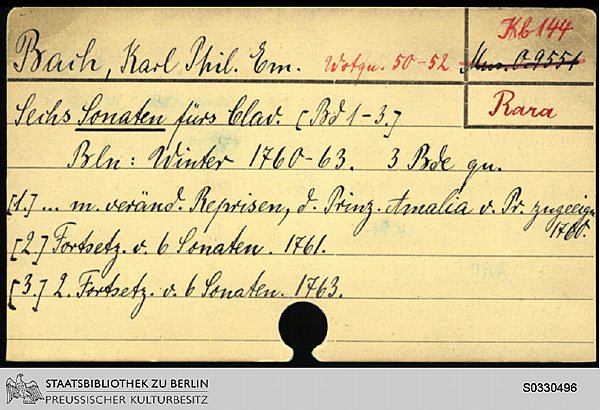 Kb 144
Bach, Karl Phil. Em. Wotqu. 50-52 Mus. O. 9551
Rara
Sechs Sonaten fürs Clav. [Bd 1-3.]
Bln: Winter 1760-63. 3 Bde qu.
[1.] ... m. veränd. Reprisen, d. Prinz. Amalia v. Pr. zugeeign.
1760.
[2.] Fortsetz. v. 6 Sonaten. 1761.
[3.] 2. Fortsetz. v. 6 Sonaten. 1763.
STAATSBIBLIOTHEK ZU BERLIN
PREUSSISCHER KULTURBESITZ
S0330496